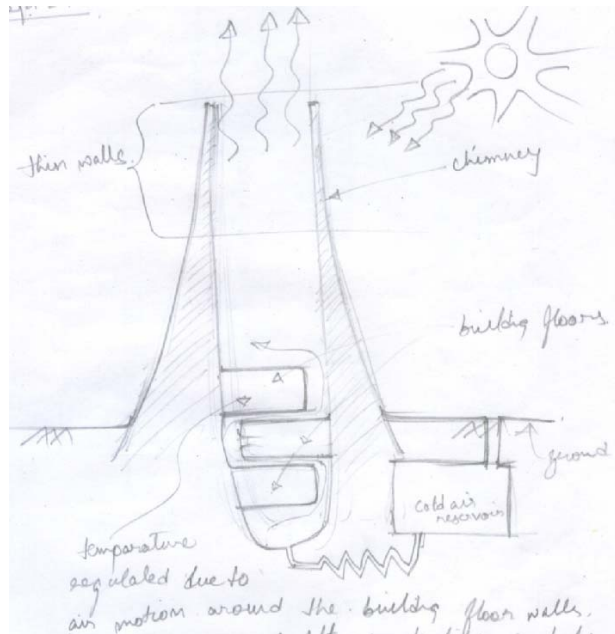 thin walls.
chimney
building floors
ground
cold air
reservoir
temparature
regulated due to
air motion around the building floor walls.